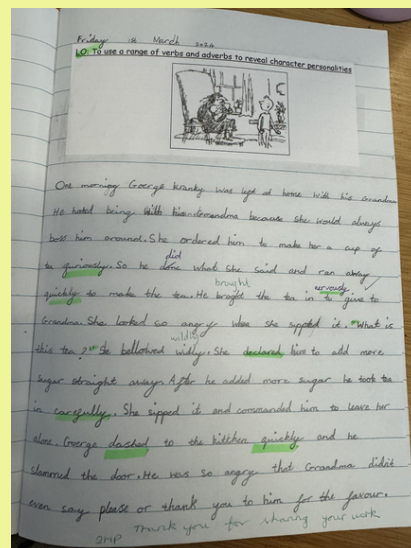 Friday 1st March 2024
LO: To use a range of verbs and adverbs to reveal character personalities
One morning George kranky was left at home with his grandma
He hated being with his Grandma because she would always
boss him around. She ordered him to make her a cup of
did
tea furiously. So he done what she said and ran away
brought
seriously
quickly to make the tea. He braght the tea in to give to
Grandma. She looked so angry when she sipped it. "What is
wildly
this tea?" She bellowed widly. She declared him to add more
sugar straight away. After he added more sugar he took tea
in carefully. She sipped it and commanded him to leave her
alone. Goerge dashed to the kitchen quickly and he
slammed the door. He was so angry that Grandma didn't
even say please or thank you to him for the favour.
2HP Thank you for sharing your work